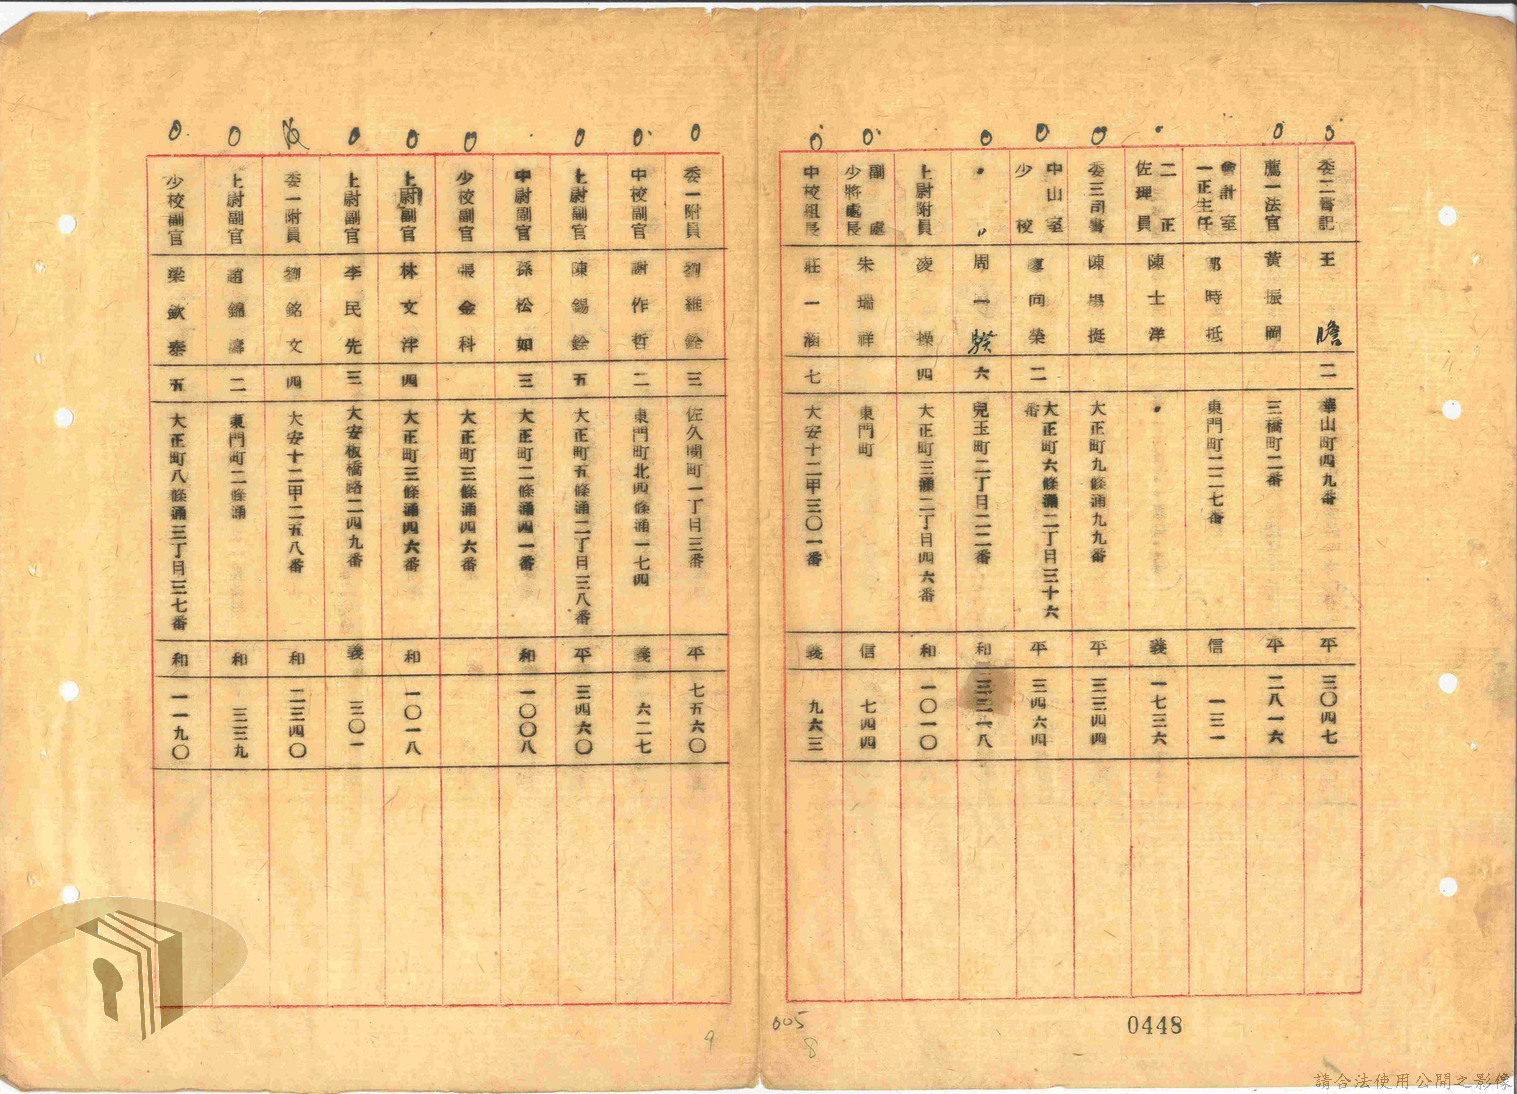 委二書記 王瞻 二 華山町四九番 平 三〇四七
薦一法官 黃振岡 三橋町二番 平 二八一六
會計室
一正主任 郭時抵 東門町二二七番 信 一三一
二正
佐理員 陳士洋 〃 義 一七三六
委三司書 陳學挺 大正町九條通九九番 平 三三四四
中山室
少校 廖向榮 二 大正町六條通二丁目三十六番 平 三四六四
〃 〃 周一騤 六 兒玉町二丁目二二番 和 三三一八
上尉附員 凌操 四 大正町三通二丁目四六番 和 一〇一〇
副處
少將處長 朱瑞祥 東門町 信 七四四
中校組長 莊一涵 七 大安十二甲三〇一番 義 九六三
委一附員 劉維銓 三 佐久間町一丁目三番 平 七五六〇
中校副官 謝作哲 二 東門町北四條通一七四 義 六二七
上尉副官 陳錫銓 五 大正町五條通二丁目三八番 平 三四六〇
中尉副官 孫松如 三 大正町二條通四一番 和 一〇〇八
少校副官 張金科 大正町三條通四六番
上尉副官 林文津 四 大正町三條通四六番 和 一〇一八
上尉副官 李民先 三 大安板橋路二四九番 義 三〇一
委一附員 劉銘文 四 大安十二甲二五八番 和 二三四〇
上尉副官 趙錦濤 二 東門町二條通 和 三三九
少校副官 梁欽泰 五 大正町八條通三丁目三七番 和 一一九〇
005
8
9
0448
請合法使用公開之影像